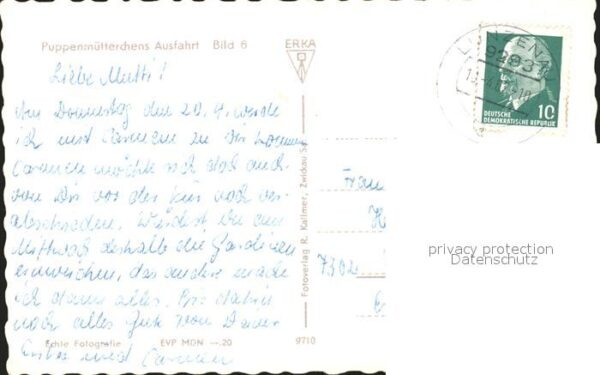 Puppenmütterchens Ausfahrt Bild 6
ERKA
Liebe Mutti!
Am Donnerstag den 20.4. werde
ich mit Carmen zu Dir kommen
Carmen möchte sich doch auch
von Dir vor der Kur noch ver-
abschieden. Würdest Du am
Mittwoch deshalb die Gardinen
einweichen, das andere mache
ich dann alles. Bis dahin
noch alles Gute von Deiner
und Carmen
Echte Fotografie EVP MDN —.20 9710
Fotoverlag R. Kallmer, Zwickau Sa.
Frau
7302
9293
10
DEUTSCHE
DEMOKRATISCHE REPUBLIK
privacy protection
Datenschutz